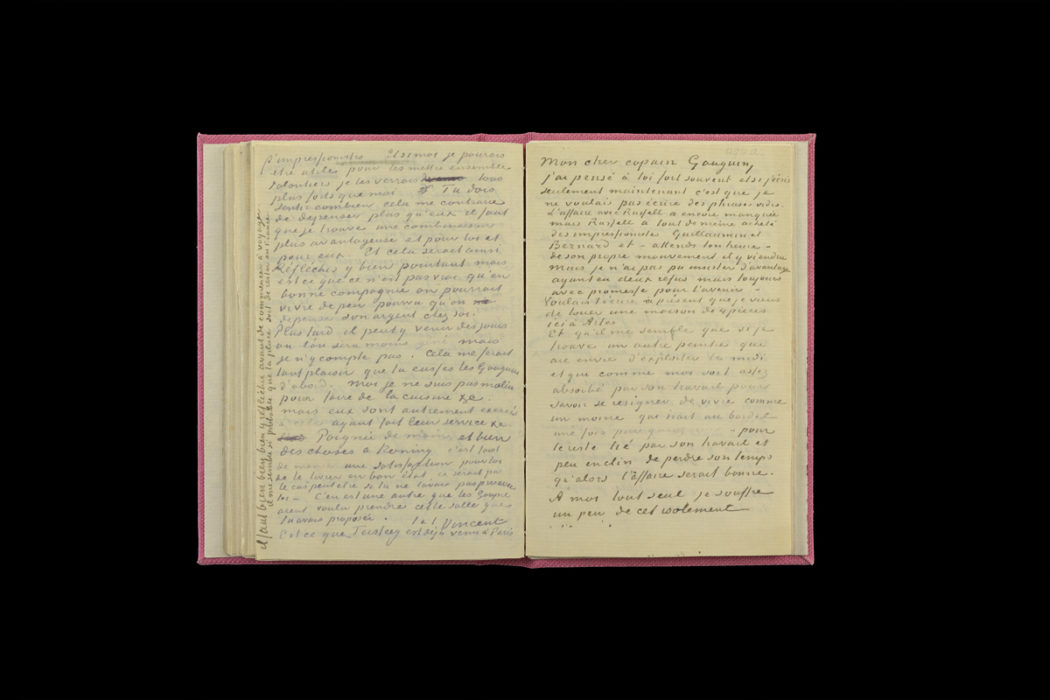 d'impressionistes. Et si moi je pouvais
être utiles pour les mettre ensemble
volontiers je les verrais tous
plus forts que moi. Tu dois
sentir combien cela me contrarie
de depenser plus qu'eux et faut
que je trouve une combinaison
plus avantageuse et pour toi et
pour eux. Et cela serait ainsi
Réfléchis y bien pourtant mais
est ce que ce n'est pas vrai qu'en
bonne compagnie on pourrait
vivre de peu pourvu qu'on
depense son argent chez soi.
Plus tard il peut y venir des jours
où l'on sera moins gêné mais
je n'y compte pas. Cela me ferait
tant plaisir que tu eusses les Gauguin
d'abord. Moi je ne suis pas malin
pour faire de la cuisine &c.
mais eux sont autrement exercés
ayant fait leur service &c.
Poignée de main et bien
des choses à Koning c'est tout
de même une satisfaction pour toi
de le livrer en bon état ce serait pas
le cas peut etre si tu ne l'avais pas pris avec
toi – C'en est une autre que les Goupil
aient voulu prendre cette salle que
tu avais proposée. t. à t. Vincent
Est ce que Tersteeg est déjà venu à Paris
il faut bien bien bien y réfléchir avant de commencer à voyager
il me semble si probable que ta place soit de rester en France
Mon cher copain Gauguin,
j'ai pensé à toi fort souvent et si j'écris
seulement maintenant c'est que je
ne voulais pas écrire des phrases vides.
L'affaire avec Russell a encore manquée
mais Russell a tout de même acheté
des impressionistes Guillaumin et
Bernard et – attends ton heure –
de son propre mouvement il y viendra
mais je n'ai pas pu insister d'avantage
ayant eu deux refus mais toujours
avec promesse pour l'avenir –
Voulais t'écrire à présent que je viens
de louer une maison de 4 pièces
ici à Arles
Et qu'il me semble que si je
trouve un autre peintre qui
aie envie d'exploiter le midi
et qui comme moi soit assez
absorbé par son travail pour
savoir se résigner de vivre comme
un moine qui irait au bordel
une fois par quinzaine – pour
le reste lié par son travail et
peu enclin de perdre son temps
qu'alors l'affaire serait bonne.
A moi tout seul je souffre
un peu de cet isolement